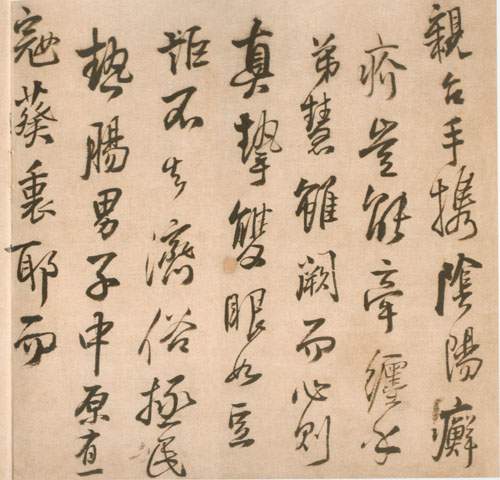 親台手攜陰陽癬
疥豈能牽纏乎
弟慧雖闕而心則
真摯雙眼如豆
詎不濟俗拯民
熱腸男子中原
寇葵裏耶而